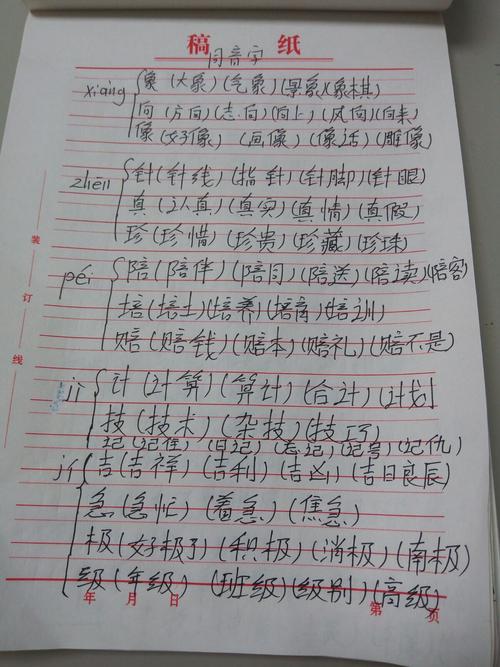 稿 纸
同音字
xiàng 象(大象)(气象)(景象)(象棋)
向(方向)(志向)(向上)(风向)(向来)
像(好像)(画像)(像话)(雕像)
zhēn 针(针线)(指针)(针脚)(针眼)
真(认真)(真实)(真情)(真假)
珍(珍惜)(珍贵)(珍藏)(珍珠)
péi 陪(陪伴)(陪同)(陪送)(陪读)(陪客)
培(培土)(培养)(培育)(培训)
赔(赔钱)(赔本)(赔礼)(赔不是)
jì 计(计算)(算计)(合计)(计划)
技(技术)(杂技)(技巧)
记(记住)(日记)(忘记)(记号)(记仇)
jí 吉(吉祥)(吉利)(吉凶)(吉日良辰)
急(急忙)(着急)(焦急)
极(好极了)(积极)(消极)(南极)
级(年级)(班级)(级别)(高级)
年 月 日 第 页
装
订
线